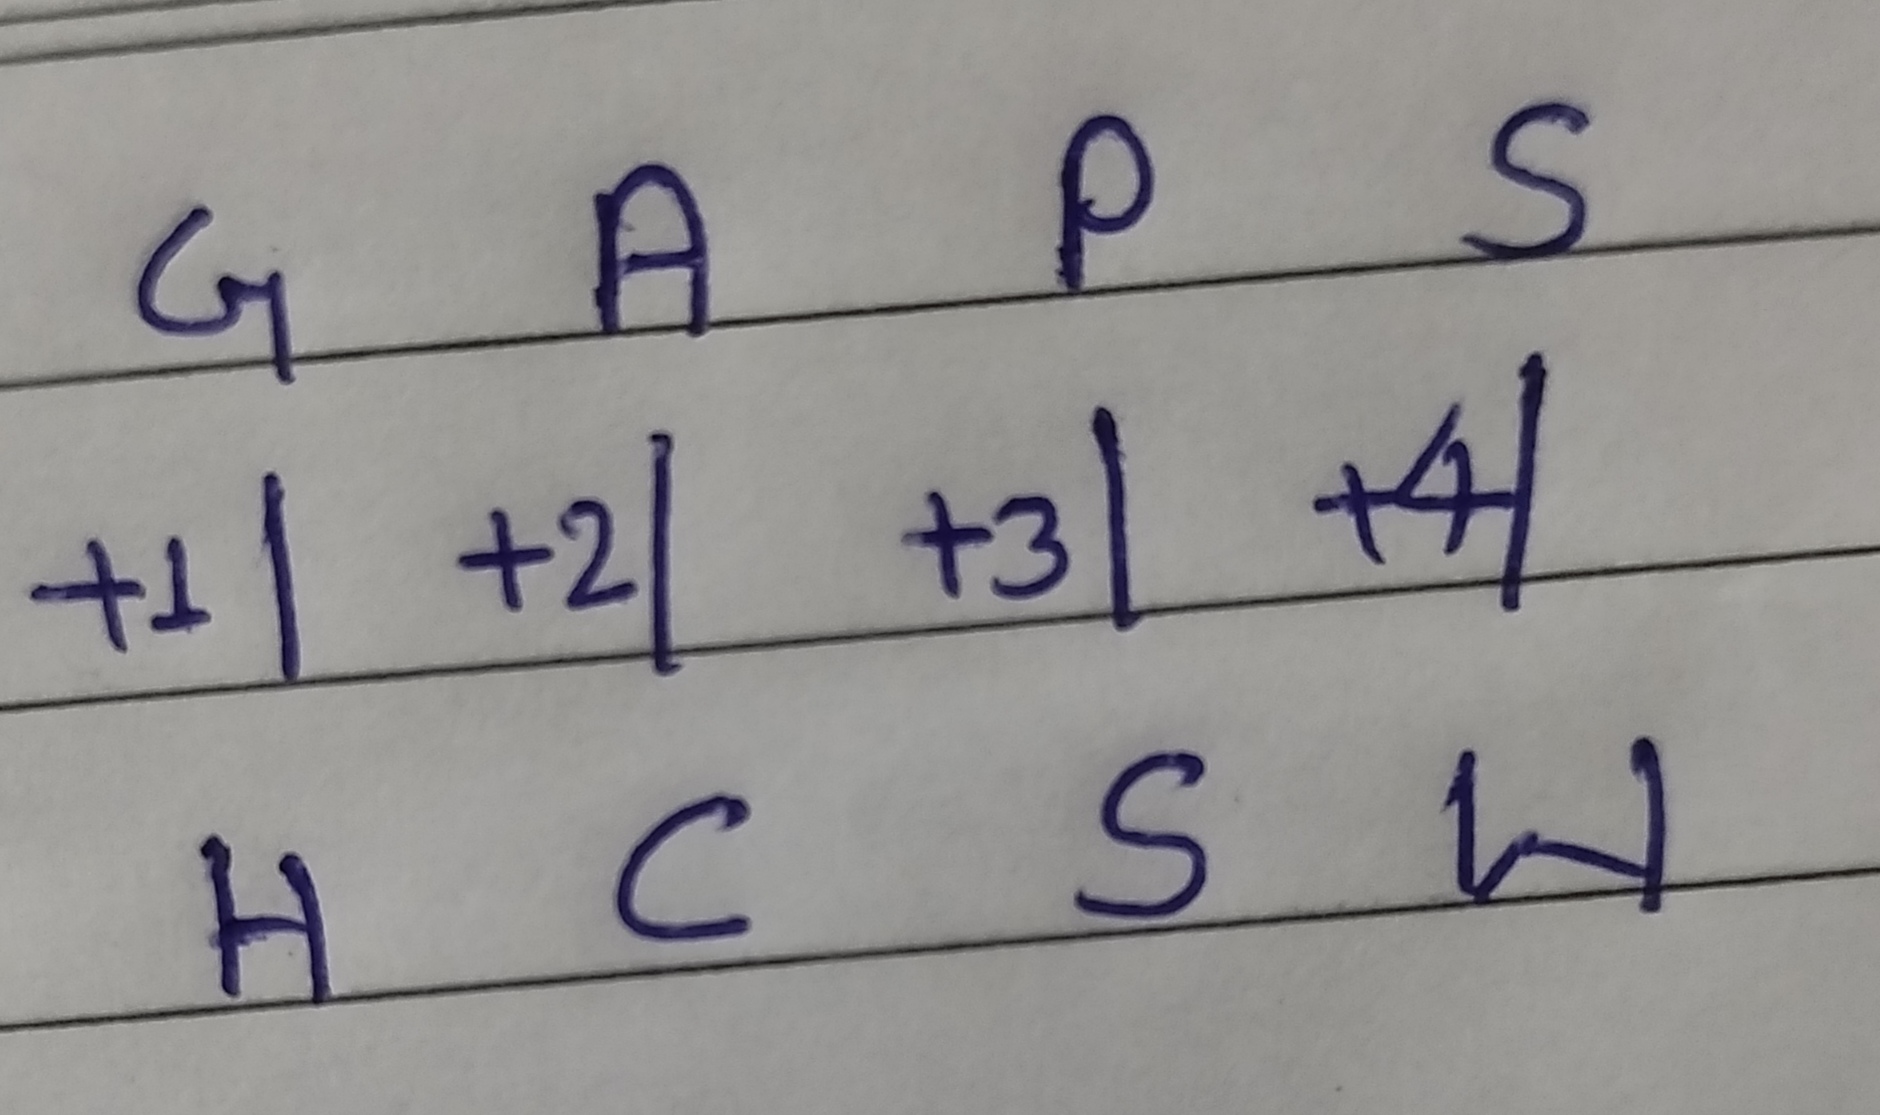 G A P S
+1| +2| +3| +4|
H C S W